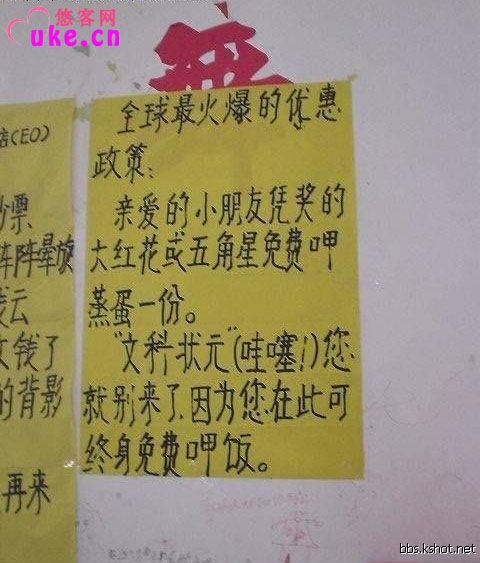 悠客网
uke.cn
全球最火爆的优惠
政策:
亲爱的小朋友凭奖的
大红花或五角星免费呷
蒸蛋一份。
"文科状元"(哇噻!)您
就别来了,因为您在此可
终身免费呷饭。
店(EO)
钞票
阵阵晕旋
钱云
文钱了
的背影
再来
bbs.kshot.net